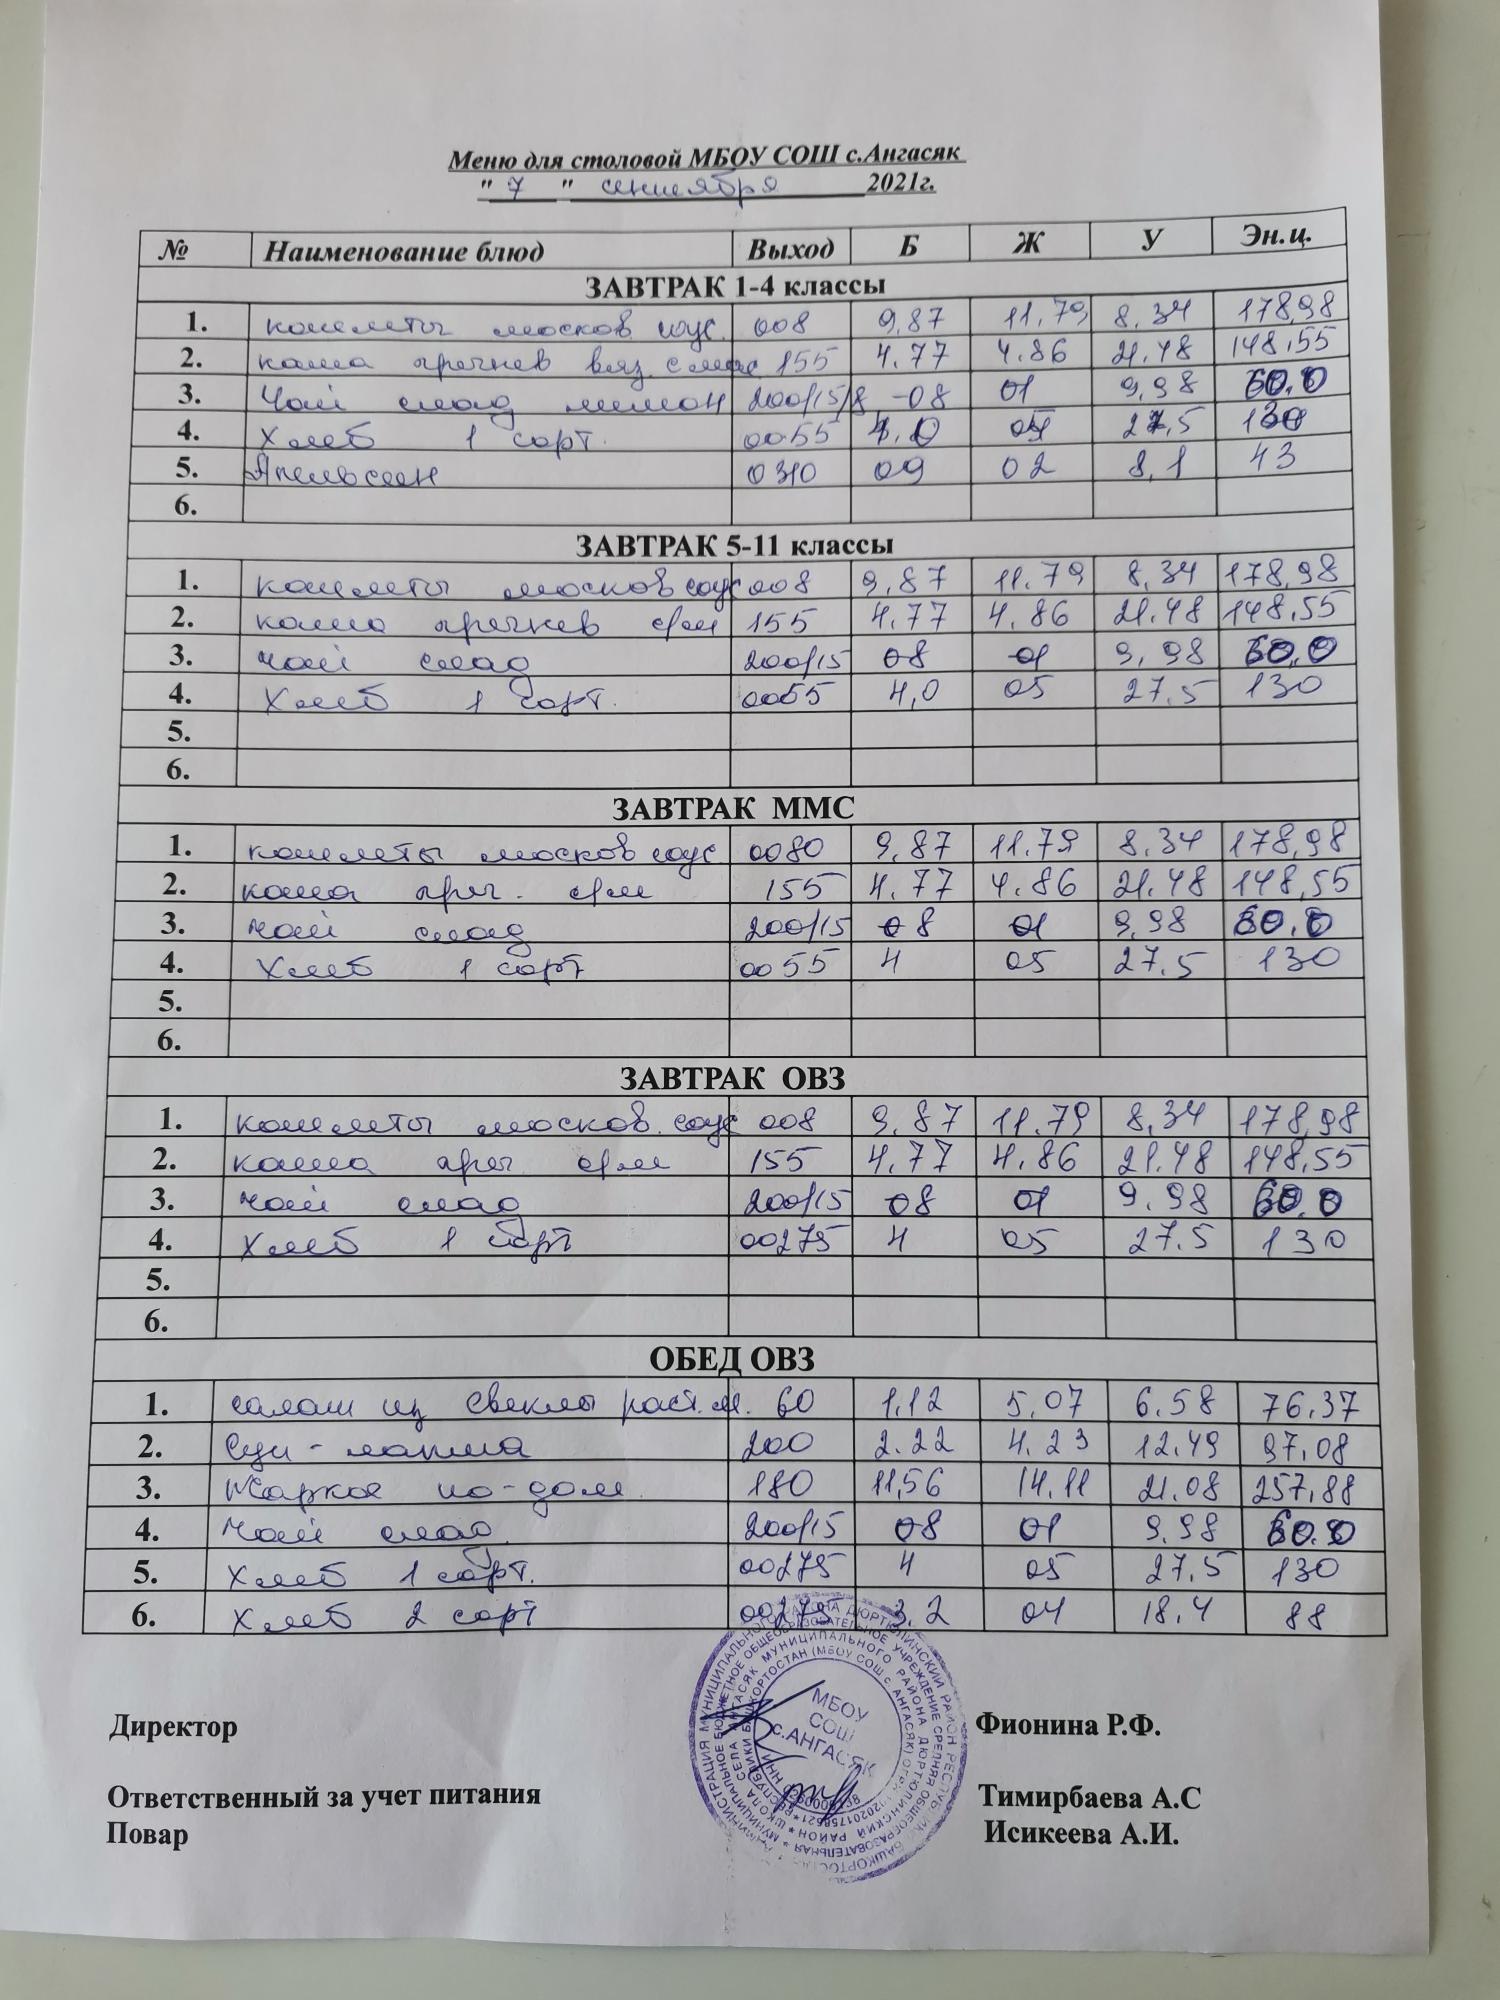 Меню для столовой МБОУ СОШ с.Ангасяк
" 7 " сентября 2021г.
№ Наименование блюд Выход Б Ж У Эн.ц.
ЗАВТРАК 1-4 классы
1. котлеты москов. соус. 008 9,87 11.79 8.34 178,98
2. каша гречнев вяз. с мас 155 4.77 4.86 21.48 148.55
3. Чай слад лимон 200/15/8 -08 01 9,98 60.0
4. Хлеб 1 сорт. 0055 4.0 05 27,5 130
5. Апельсин 0310 09 02 8,1 43
6.
ЗАВТРАК 5-11 классы
1. котлеты москов соус 008 9,87 11.79 8,34 178,98
2. каша гречнев с/м 155 4,77 4.86 21.48 148,55
3. чай слад 200/15 08 01 9,98 60,0
4. Хлеб 1 сорт. 0055 4,0 05 27.5 130
5.
6.
ЗАВТРАК ММС
1. котлеты москов соус 0080 9.87 11.79 8.34 178,98
2. каша греч. с/м 155 4.77 4.86 21.48 148,55
3. чай слад 200/15 08 01 9,98 60.0
4. Хлеб 1 сорт 0055 4 05 27.5 130
5.
6.
ЗАВТРАК ОВЗ
1. котлеты москов. соус 008 9,87 11.79 8,34 178,98
2. каша греч с/м 155 4.77 4.86 21.48 148.55
3. чай слад 200/15 08 01 9,98 60.0
4. Хлеб 1 сорт 00275 4 05 27.5 130
5.
6.
ОБЕД ОВЗ
1. салат из свеклы раст.м. 60 1.12 5,07 6.58 76.37
2. Суп-лапша 200 2.22 4.23 12.49 97,08
3. Жаркое по-дом. 180 11,56 14.11 21.08 257,88
4. чай слад 200/15 08 01 9.98 60.0
5. Хлеб 1 сорт. 00275 4 05 27,5 130
6. Хлеб 2 сорт 00275 3.2 04 18.4 88
МБОУ
СОШ
с.АНГАСЯК
Директор Фионина Р.Ф.
Ответственный за учет питания Тимирбаева А.С
Повар Исикеева А.И.